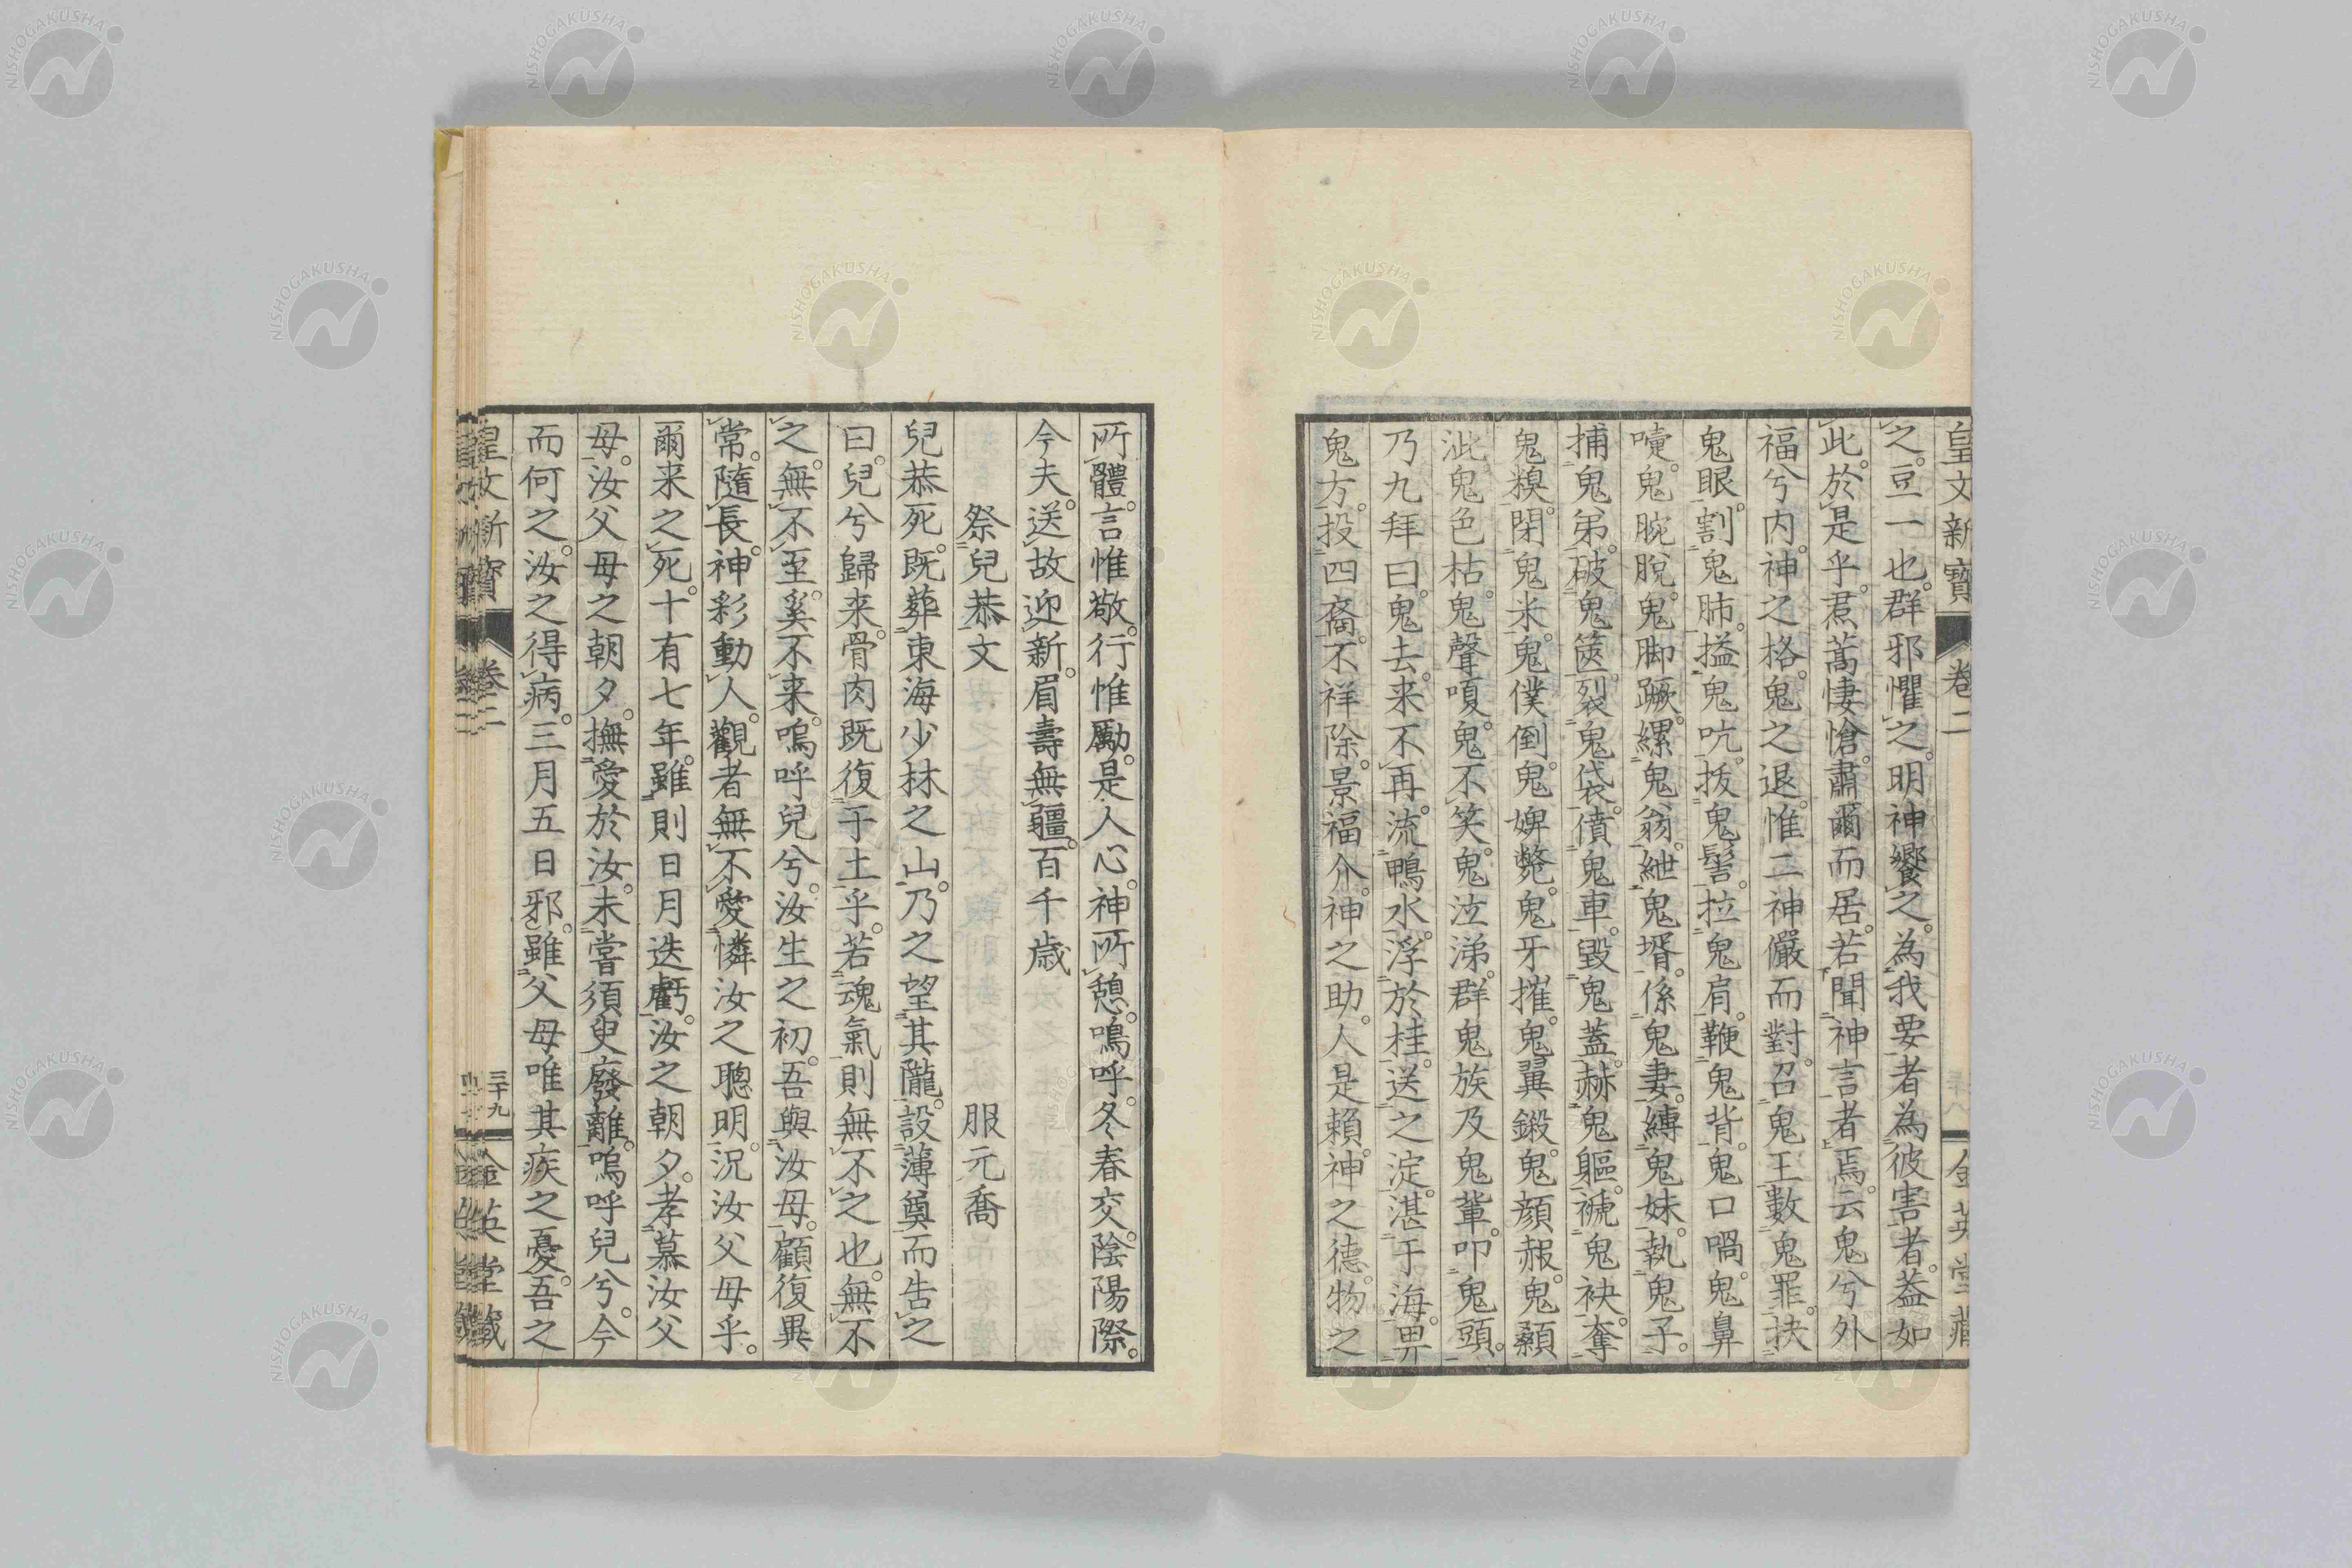 皇文新寶 卷二 金英堂藏
之。豆一也。群邪懼之。明神饗之。為我要者為彼害者。蓋如
此。於是乎。焄蒿悽愴。肅爾而居。若聞神言者焉。云鬼兮外
福兮内。神之格。鬼之退。惟二神儼而對。召鬼王數鬼罪。抉
鬼眼。割鬼肺。搤鬼吭。拔鬼髻。拉鬼肩。鞭鬼背。鬼口喎。鬼鼻
嚏。鬼腕脫。鬼脚蹶。縲鬼翁。紲鬼壻。係鬼妻。縛鬼妹。執鬼子。
捕鬼弟。破鬼篋。裂鬼袋。僨鬼車。毀鬼蓋。赫鬼軀。褫鬼袂。奪
鬼糗。閉鬼米。鬼僕倒。鬼婢斃。鬼牙摧。鬼翼鎩。鬼顔赧。鬼顙
泚。鬼色枯。鬼聲嗄。鬼不笑。鬼泣涕。群鬼族及鬼輩。叩鬼頭。
乃九拜曰。鬼去。来不再。流鴨水。浮於桂。送之淀。湛于海。畀
鬼方。投四裔。不祥除。景福介。神之助。人是賴。神之德。物之
所體。言惟敬。行惟勵。是人心。神所憩。嗚呼。冬春交。陰陽際。
今夫。送故迎新。眉壽無疆。百千歳
祭兒恭文 服元喬
兒恭死。既葬東海少林之山。乃之望其隴。設薄奠而告之
曰。兒兮歸来。骨肉既復于土乎。若魂氣則無不之也。無不
之。無不至。奚不来。嗚呼兒兮。汝生之初。吾與汝母。顧復異
常。隨長。神彩動人。觀者無不愛憐汝之聰明。況汝父母乎。
爾来之死。十有七年。雖則日月迭虧。汝之朝夕。孝慕汝父
母。汝父母之朝夕。撫愛於汝。未嘗須臾廢離。嗚呼兒兮。今
而何之。汝之得病。三月五日邪。雖父母唯其疾之憂。吾之
皇文新寶 卷二 三十九 金英堂藏
NISHOGAKUSHA